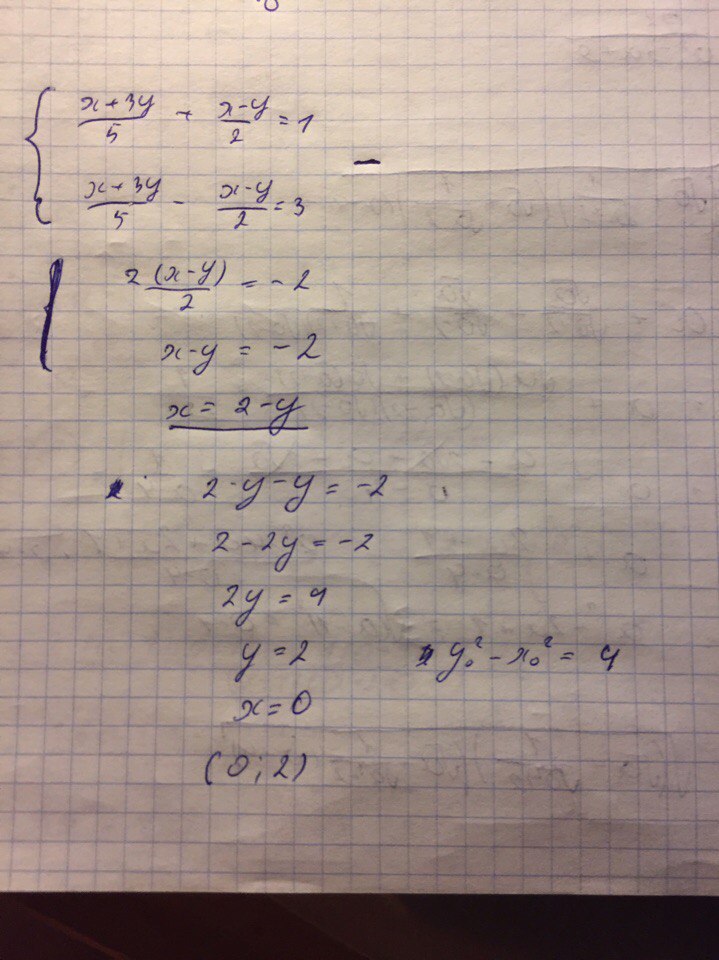 x+3y/5 + x-y/2 = 1
x+3y/5 - x-y/2 = 3
2(x-y)/2 = -2
x-y = -2
x = 2-y
2-y-y = -2
2-2y = -2
2y = 4
y = 2
y₀² - x₀² = 4
x = 0
(0; 2)